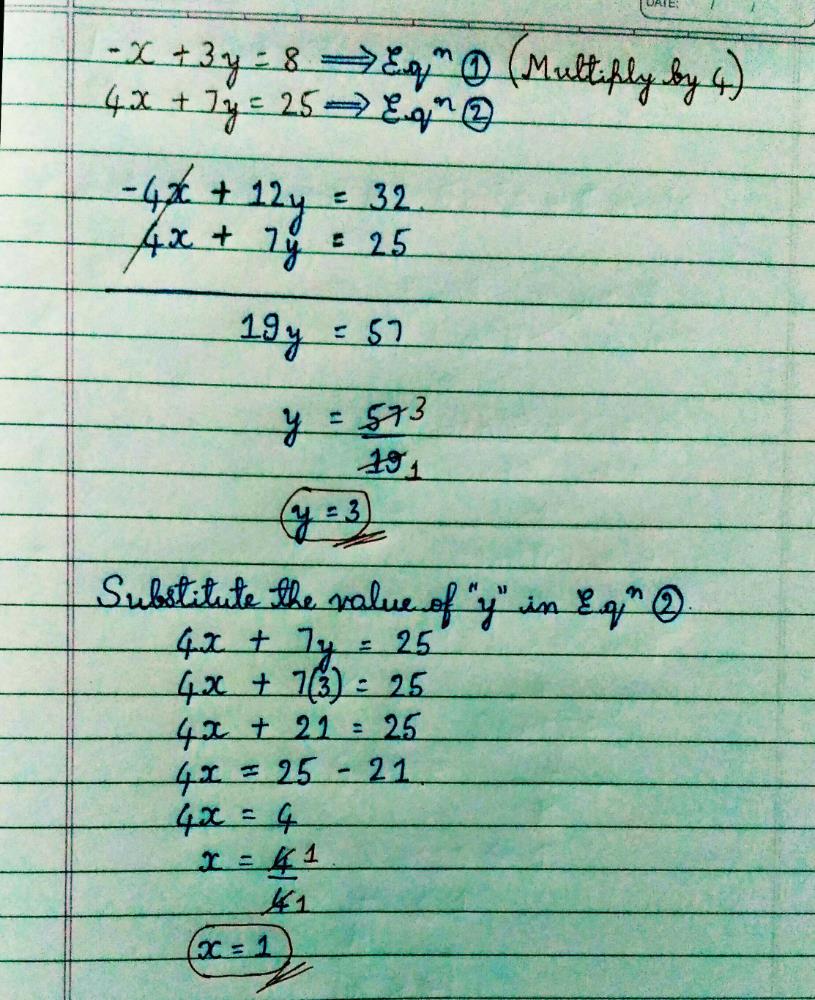 DATE: / /
-x + 3y = 8 ⟹ Eqⁿ ① (Multiply by 4)
4x + 7y = 25 ⟹ Eqⁿ ②
-4x + 12y = 32
4x + 7y = 25
19y = 57
y = 57 3
19 1
y = 3
Substitute the value of "y" in Eqⁿ ②.
4x + 7y = 25
4x + 7(3) = 25
4x + 21 = 25
4x = 25 - 21
4x = 4
x = 4 1
4 1
x = 1